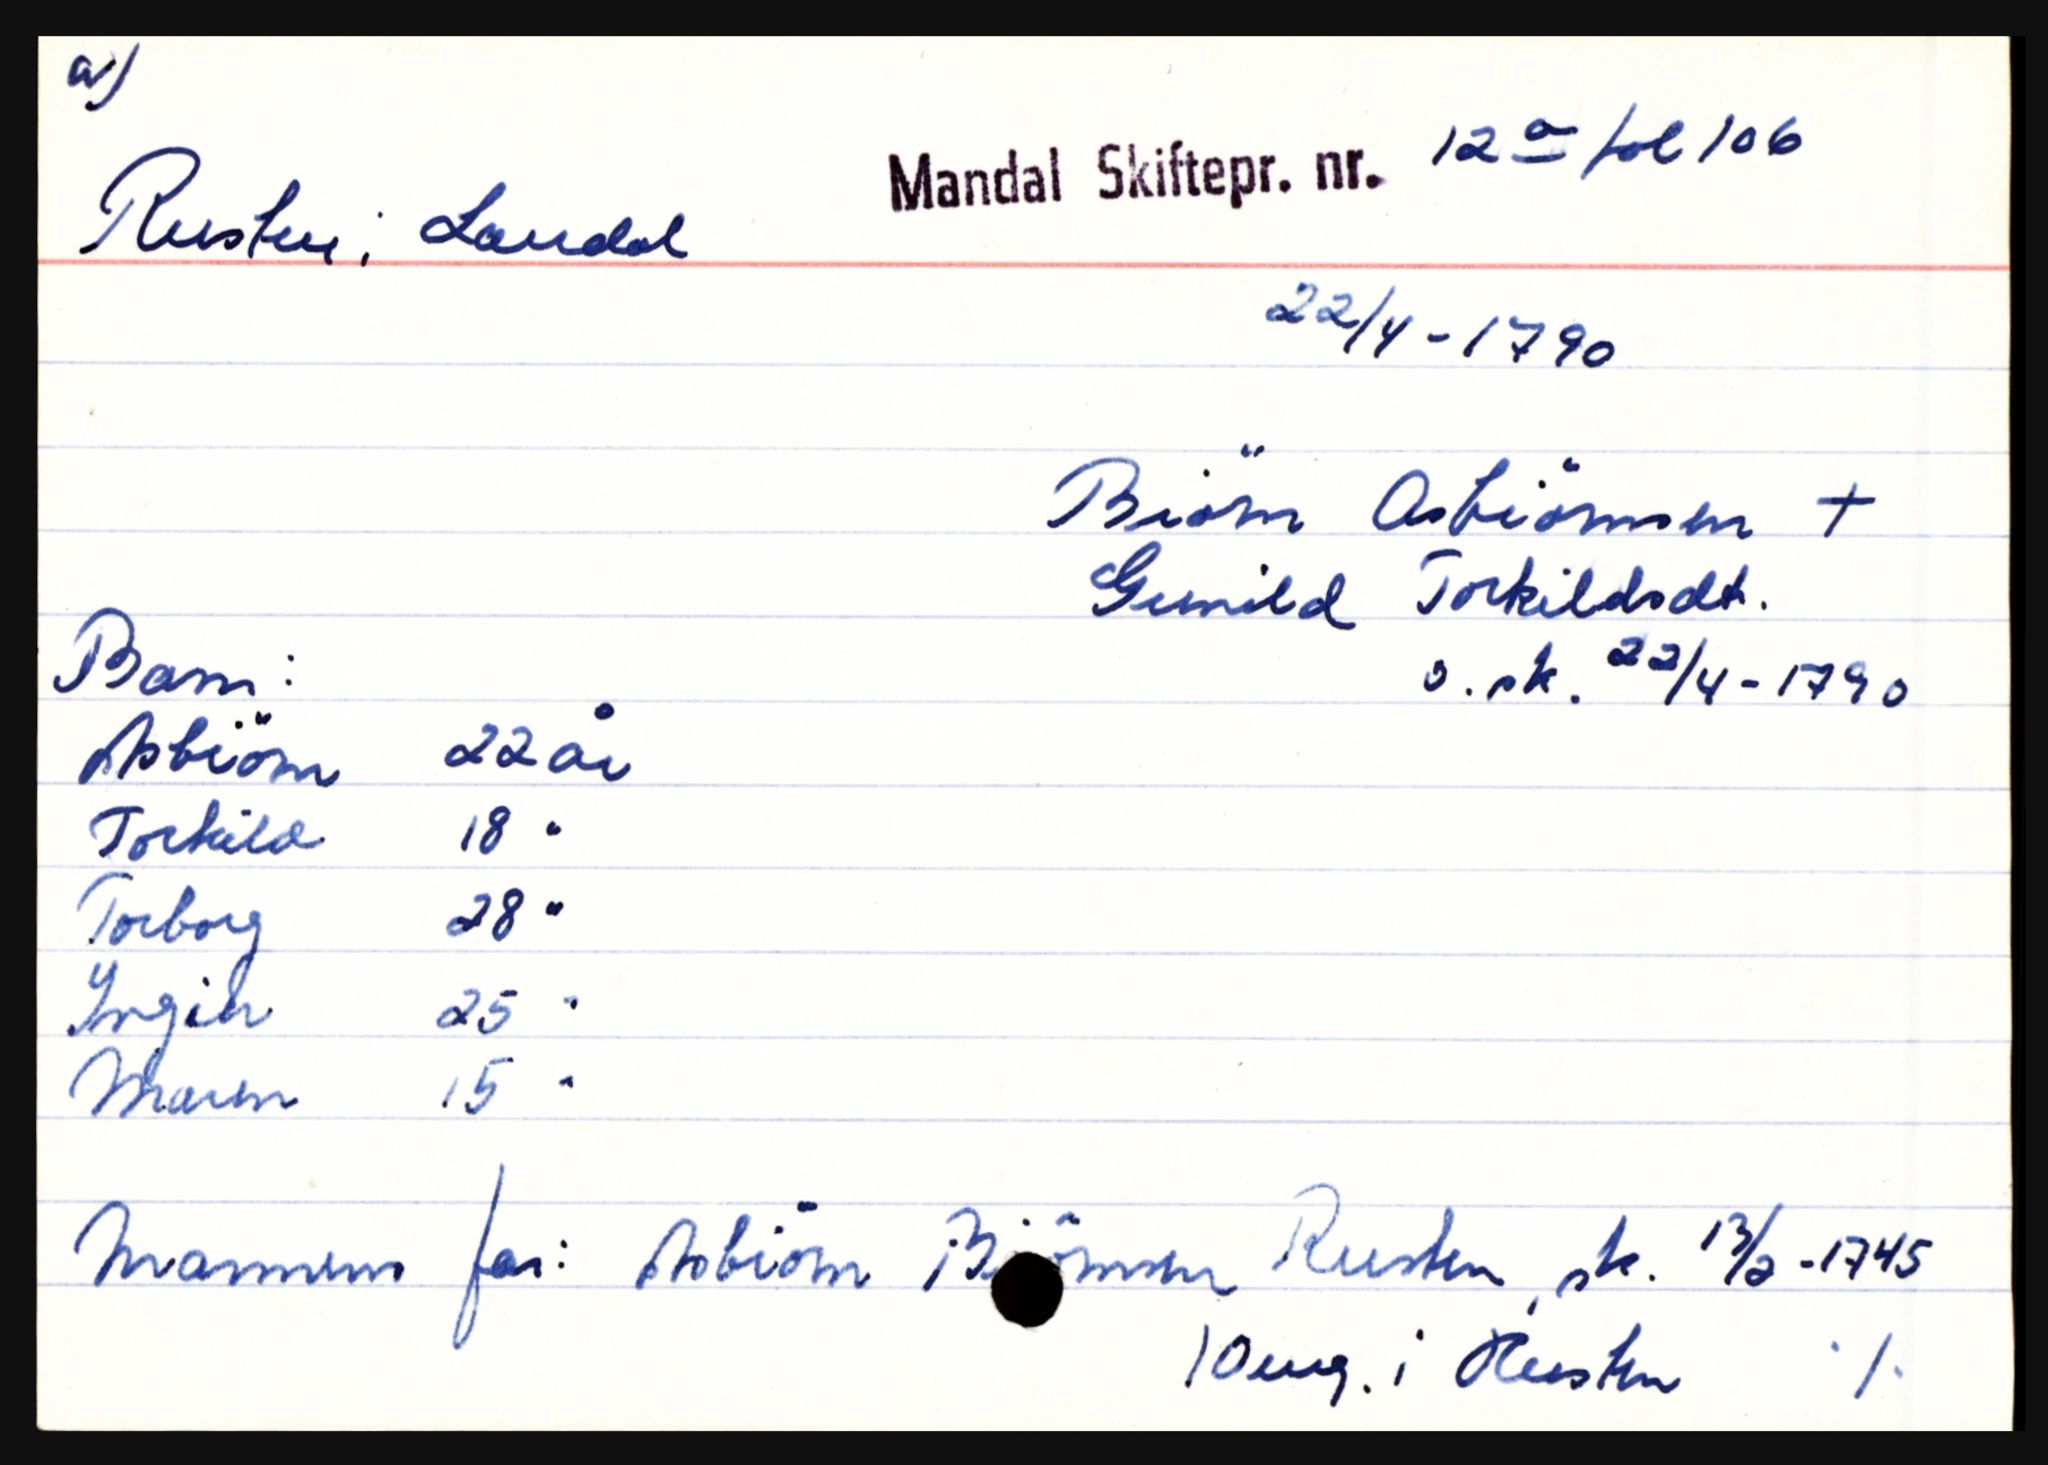 a)
Mandal Skiftepr. nr. 12a fol 106
Rusten i Laudal
22/4-1790
Biörn Asbiörnsen +
Gunild Torkildsdt.
s. sk. 22/4-1790
Barn:
Asbiörn 22 år
Torkild 18 "
Torborg 28 "
Ingier 25 "
Maren 15 "
Mannens far: Asbiörn Biörnsen Rusten, sk. 13/2-1745
10 eng. i Rusten ./.